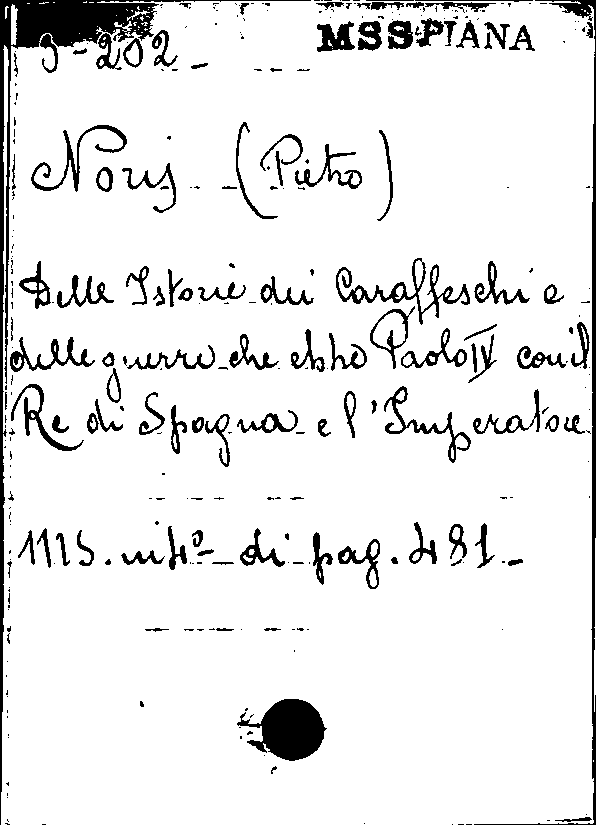 3-202 -
MSS PIANA
Noris (Pietro)
Delle Istorie dei Caraffeschi e
delle guerre che ebbe Paolo IV con il
Re di Spagna e l'Imperatore
in 4º di pag. 481 -